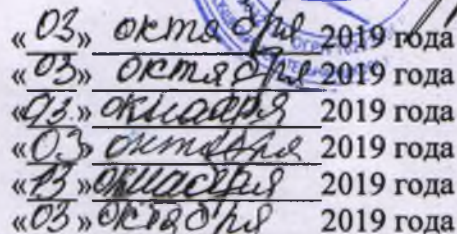 «03» октября 2019 года
«03» октября 2019 года
«03» октября 2019 года
«03» октября 2019 года
«13» октября 2019 года
«03» октября 2019 года